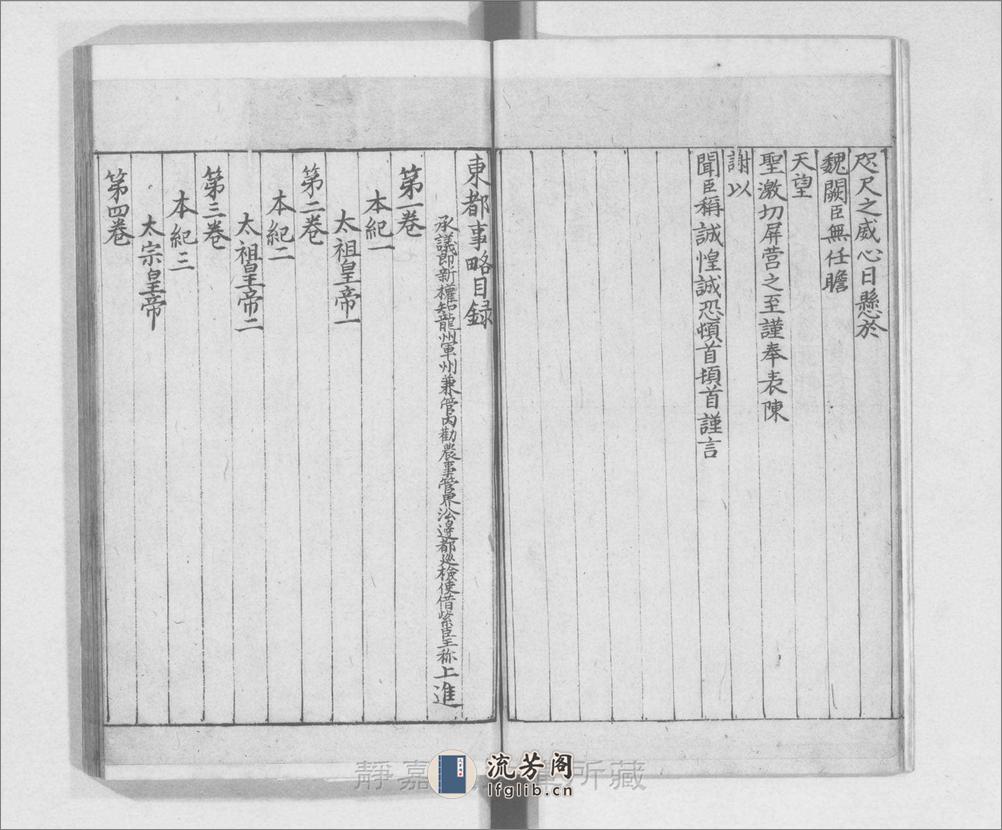 咫尺之威心日懸於
魏闕臣無任瞻
天望
聖激切屏营之至謹奉表陳
謝以
聞臣稱誠惶誠恐頓首頓首謹言
東都事略目録
承議郎新權知龍州軍州兼管内勸農事管界㳂邊都廵檢使借紫臣王称上進
第一卷
本紀一
太祖皇帝一
第二卷
本紀二
太祖皇帝二
第三卷
本紀三
太宗皇帝
第四卷
静嘉 所藏
流芳阁
lfglib.cn